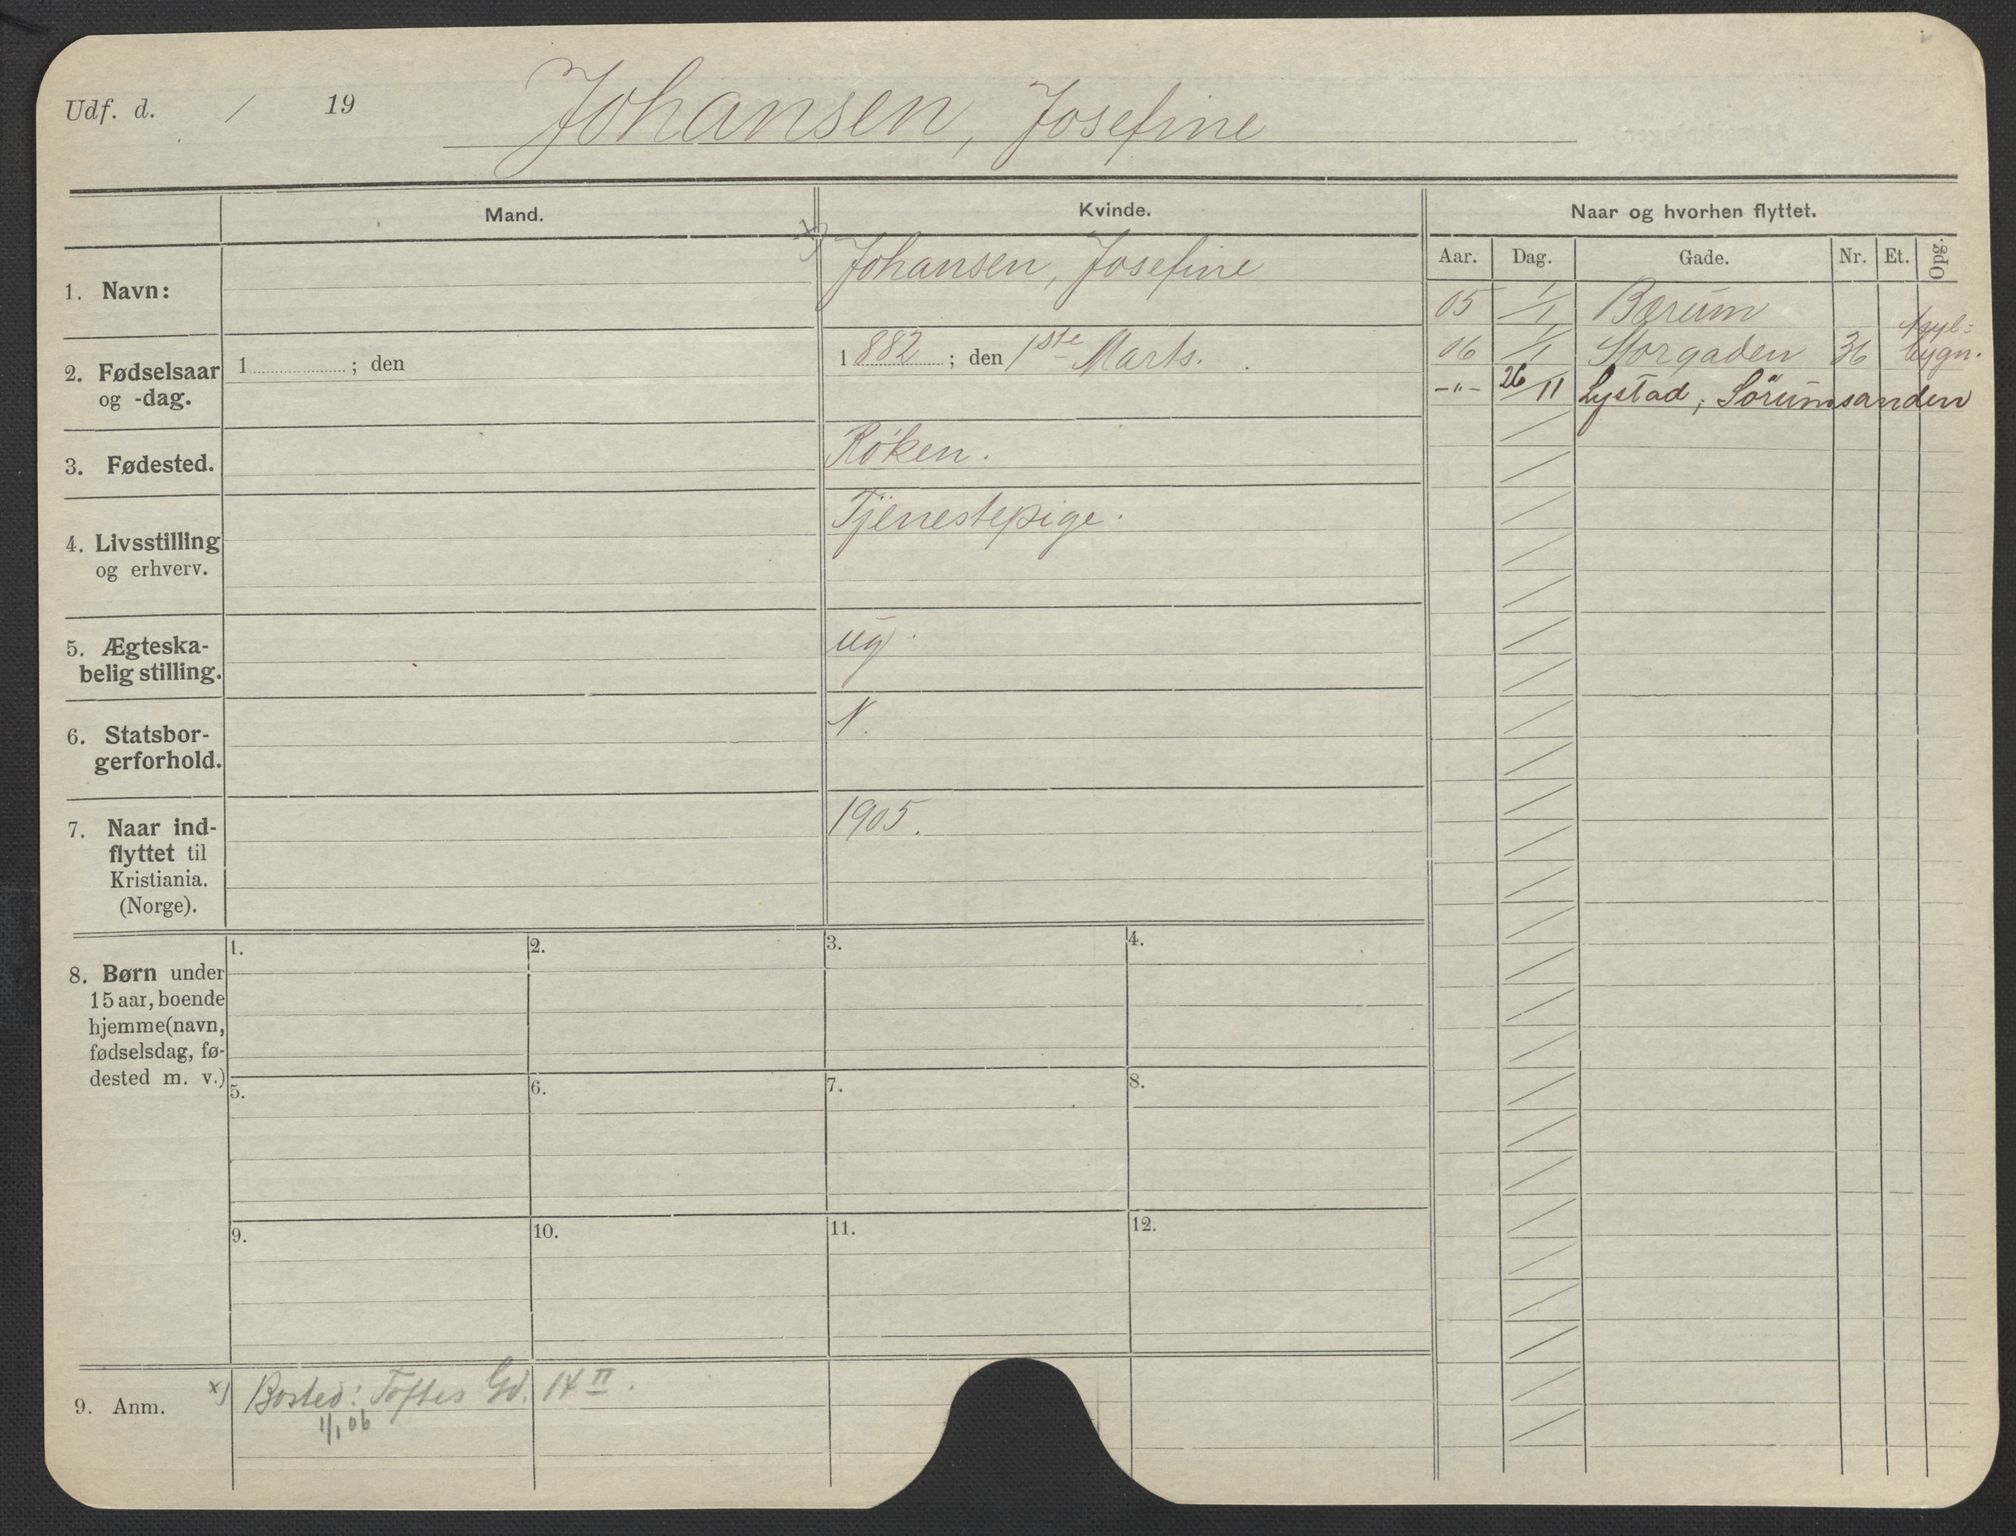 Udf. d. / 19 Johansen, Josefine
Mand. Kvinde. Naar og hvorhen flyttet.
Aar. Dag. Gade. Nr. Et. Opg.
1. Navn: x) Johansen, Josefine
05 1/1 Bærum
2. Fødselsaar og -dag.
1 ; den
1882 ; den 1ste Marts.
06 1/1 Storgaden 36 Asyl=
bygn.
-"- 26/11 Lystad, Sörumsanden
3. Fødested. Røken.
4. Livsstilling Tjenestepige.
og erhverv.
5. Ægteska- ug.
belig stilling.
6. Statsbor- N.
gerforhold.
7. Naar ind- 1905.
flyttet til
Kristiania.
(Norge).
8. Børn under
15 aar, boende
hjemme(navn,
fødselsdag, fø-
dested m. v.)
1. 2. 3. 4.
5. 6. 7. 8.
9. 10. 11. 12.
9. Anm. x) Bosted: Toftes Gd. 14 II.
1/1 06